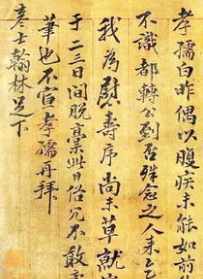 孝孺白昨偶以腹疾未能如前
不識都轉公到否殊愈之人未之
我為慰壽序尚未草就
于二三日間脫稾此日俗冗不敢
筆也不宣孝孺再拜
彥士翰林足下